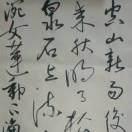 空山新雨後
來秋明月松
泉石上流
浣女蓮動下漁